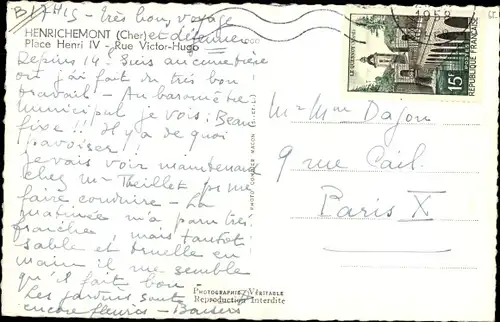 BIXHIS - très bon voyage
et déjeuner
HENRICHEMONT (Cher)
Place Henri IV - Rue Victor-Hugo
Depuis 14. Suis au cimetière
où j'ai fait du très bon
travail - Au baromètre
municipal je vois : Beau
fixe !! Il y a de quoi
pavoiser !
je vais voir maintenant
chez Mr Theillet pr me
faire conduire - La
matinée m'a paru très
fraîche, mais tantôt
sable et truelle en
main il me semble
qu'il fait bon
Les jardins sont
encore fleuris - Baisers
PHOTOGRAPHIE VÉRITABLE
Reproduction Interdite
PHOTO COMBIER MACON
1958
LE QUESNOY
15F
RÉPUBLIQUE FRANÇAISE
POSTES
M. Mme Dajou
9 rue Cail.
Paris X